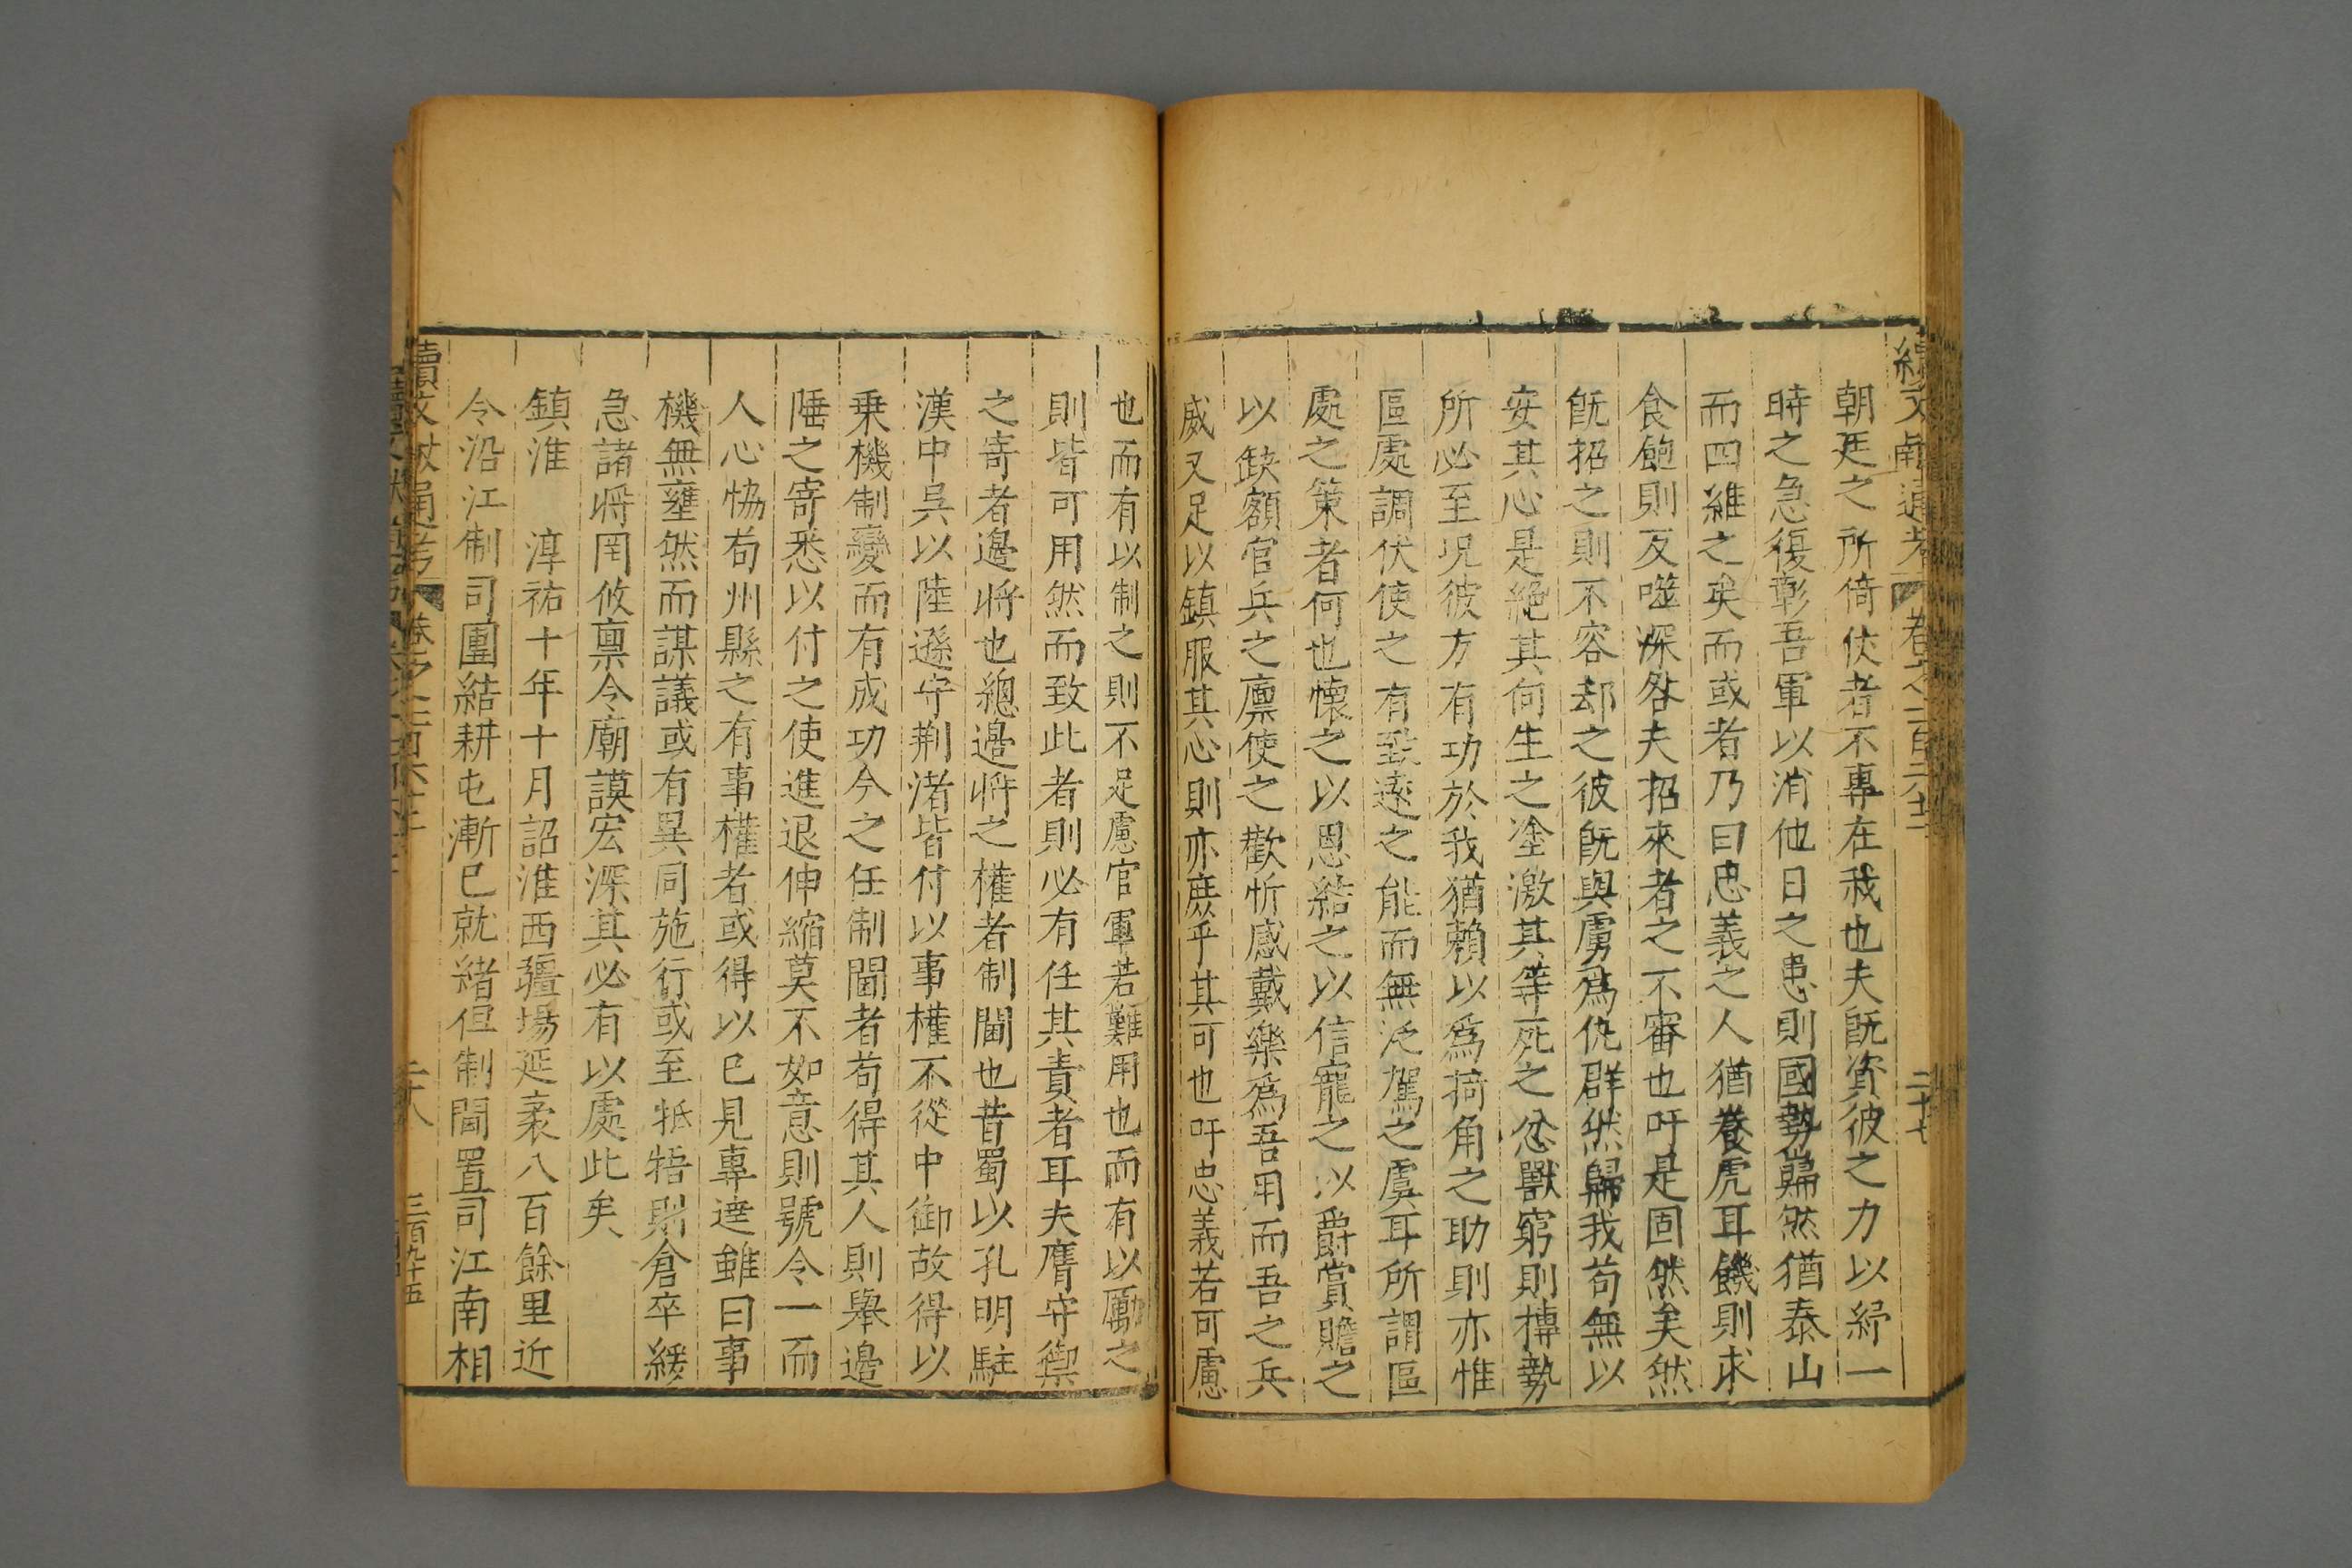 朝廷之所倚仗者不專在我也夫旣資彼之力以紓一
時之急復彰吾軍以消他日之患則國勢巋然猶泰山
而四維之矣而或者乃曰忠義之人猶養虎耳饑則求
食飽則反噬深咎夫招來者之不審也吁是固然矣然
旣招之則不容却之彼旣與虜爲仇群然歸我苟無以
安其心是絕其何生之塗激其等死之忿獸窮則摶勢
所必至况彼方有功於我猶賴以爲掎角之助則亦惟
區處調伏使之有致遠之能而無泛駕之虞耳所謂區
處之策者何也懷之以恩結之以信寵之以爵賞贍之
以缺額官兵之廩使之歡忻感戴樂爲吾用而吾之兵
威又足以鎮服其心則亦庶乎其可也吁忠義若可慮
也而有以制之則不足慮官軍若難用也而有以勵之
則皆可用然而致此者則必有任其責者耳夫膺守禦
之寄者邊將也總邊將之權者制閫也昔蜀以孔明駐
漢中吳以陸遜守荆渚皆付以事權不從中御故得以
乗機制變而有成功今之任制閫者苟得其人則舉邊
陲之寄悉以付之使進退伸縮莫不如意則號令一而
人心恊苟州縣之有事權者或得以已見專達雖曰事
機無壅然而謀議或有異同施行或至牴牾則倉卒緩
急諸將罔攸禀令廟謨宏深其必有以處此矣
鎮淮　淳祐十年十月詔淮西疆場延袤八百餘里近
令沿江制司團結耕屯漸已就緒但制閫置司江南相
續文献通考 卷之一百六十二 二十八 三百九十五